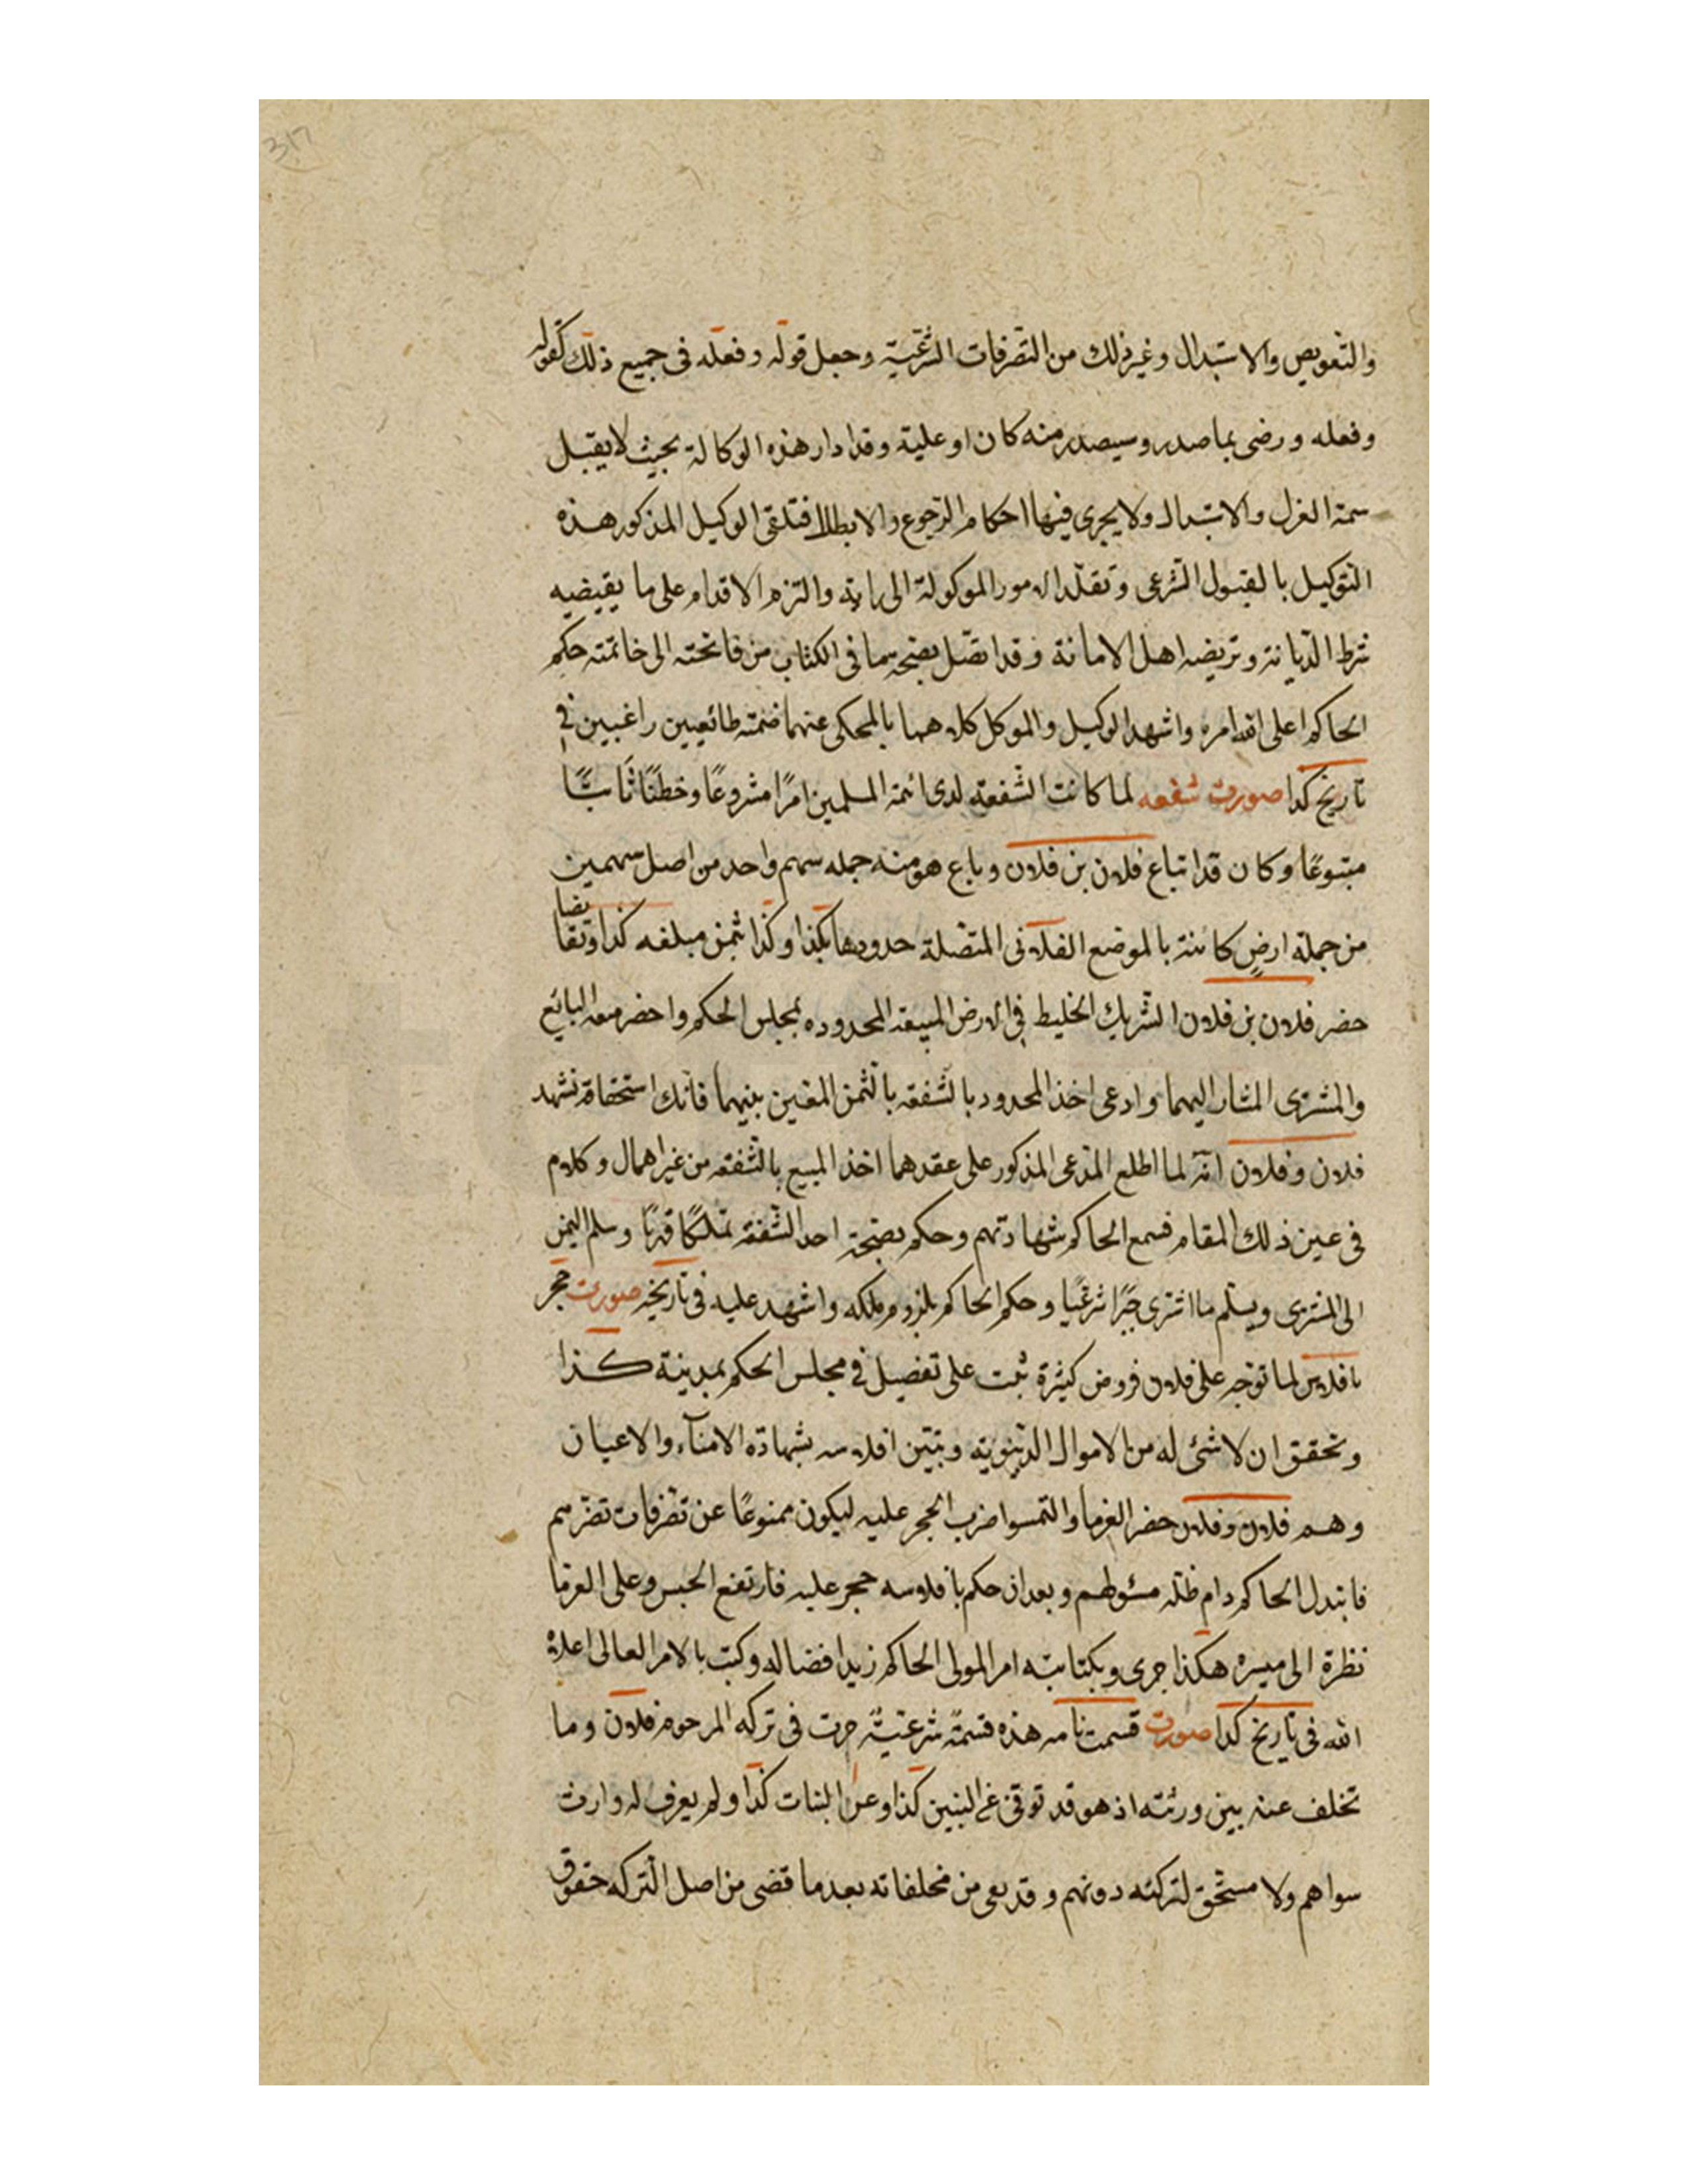 317
والتعويض والاستبدال وغير ذلك من التصرفات الشرعية وجعل قوله وفعله فى جميع ذلك كقوله
وفعله ورضى بما صدر وسيصدر منه كان او عليه وقد ادار هذه الوكالة بحيث لا يقبل
سمة العزل والاستبدال ولا يجرى فيها احكام الرجوع والابطال فتلقى الوكيل المذكور هذه
التوكيل بالقبول الشرعى وتقلد الامور الموكولة الى رايه والتزم الاقدام على ما يقيضيه
شرط الديانة وتريضه اهل الامانة وقد اتصل بصحة ما فى الكتاب من فاتحته الى خاتمته حكم
الحاكم اعلى الله امره واشهد الوكيل والموكل كلاهما بالمحكى عنهما ضمته طائعيين راغبين فى
تاريخ كذا صورت شفعه لما كانت الشفعة لدى ائمة المسلمين امرًا مشروعًا وخطنًا ثابتًا
متبوعًا وكان قد اتباع فلان بن فلان وباع هو منه جمله سهم واحد من اصل سهمين
من جملة ارضٍ كائنة بالموضع الفلانى المتصلة حدودها بكذا وكذا بثمن مبلغه كذا وتقابضا
حضر فلان بن فلان الشريك الخليط فى الارض المبيعة المحدوده بمجلس الحكم واحضر معه البائع
والمشترى المشار اليهما وادعى اخذ المحدود بالشفعه بالثمن المعين بينهما فانك استحقاقه فشهد
فلان وفلان انّه لما اطلع المدعى المذكور على عقدهما اخذ المبيع بالشفعه من غير اهمال وكلام
فى عين ذلك المقام فسمع الحاكم شهادتهم وحكم بصحة احد الشفعة تملكًا قهرًا وسلم الثمن
الى المشترى ويسلم ما اشترى جبرًا شرعيًا وحكم الحاكم بلزوم ملكه واشهد عليه فى تاريخه صورت حجر
بافلاس لما توجه على فلان فروض كثيرة ثبت على تفصيل فى مجلس الحكم بمدينة كذا
وتحقق ان لا شئ له من الاموال الدنيوية وتبين افلاسه بشهادة الامناء والاعيان
وهم فلان وفلان حضر الغرما والتمسوا ضرب الحجر عليه ليكون ممنوعًا عن تصرفات تضرهم
فابتدل الحاكم دام ظله مسئولهم وبعد ان حكم بافلاسه حجر عليه فارتفع الحبس وعلى الغرما
نظرة الى ميسره هكذا جرى وبكتابته امر المولى الحاكم زيد افضاله وكتب بالامر العالى اعلاه
الله فى تاريخ كذا صورت قسمت نامه هذه قسمةٌ شرعيةٌ جرت فى تركه المرحوم فلان وما
تخلف عنه بين ورثته اذ هو قد توفى عن البنين كذا وعن البنات كذا ولم يعرف له وارث
سواهم ولا مستحق لتركته دونهم وقد بقى من مخلفاته بعد ما قضى من اصل التركه حقوق